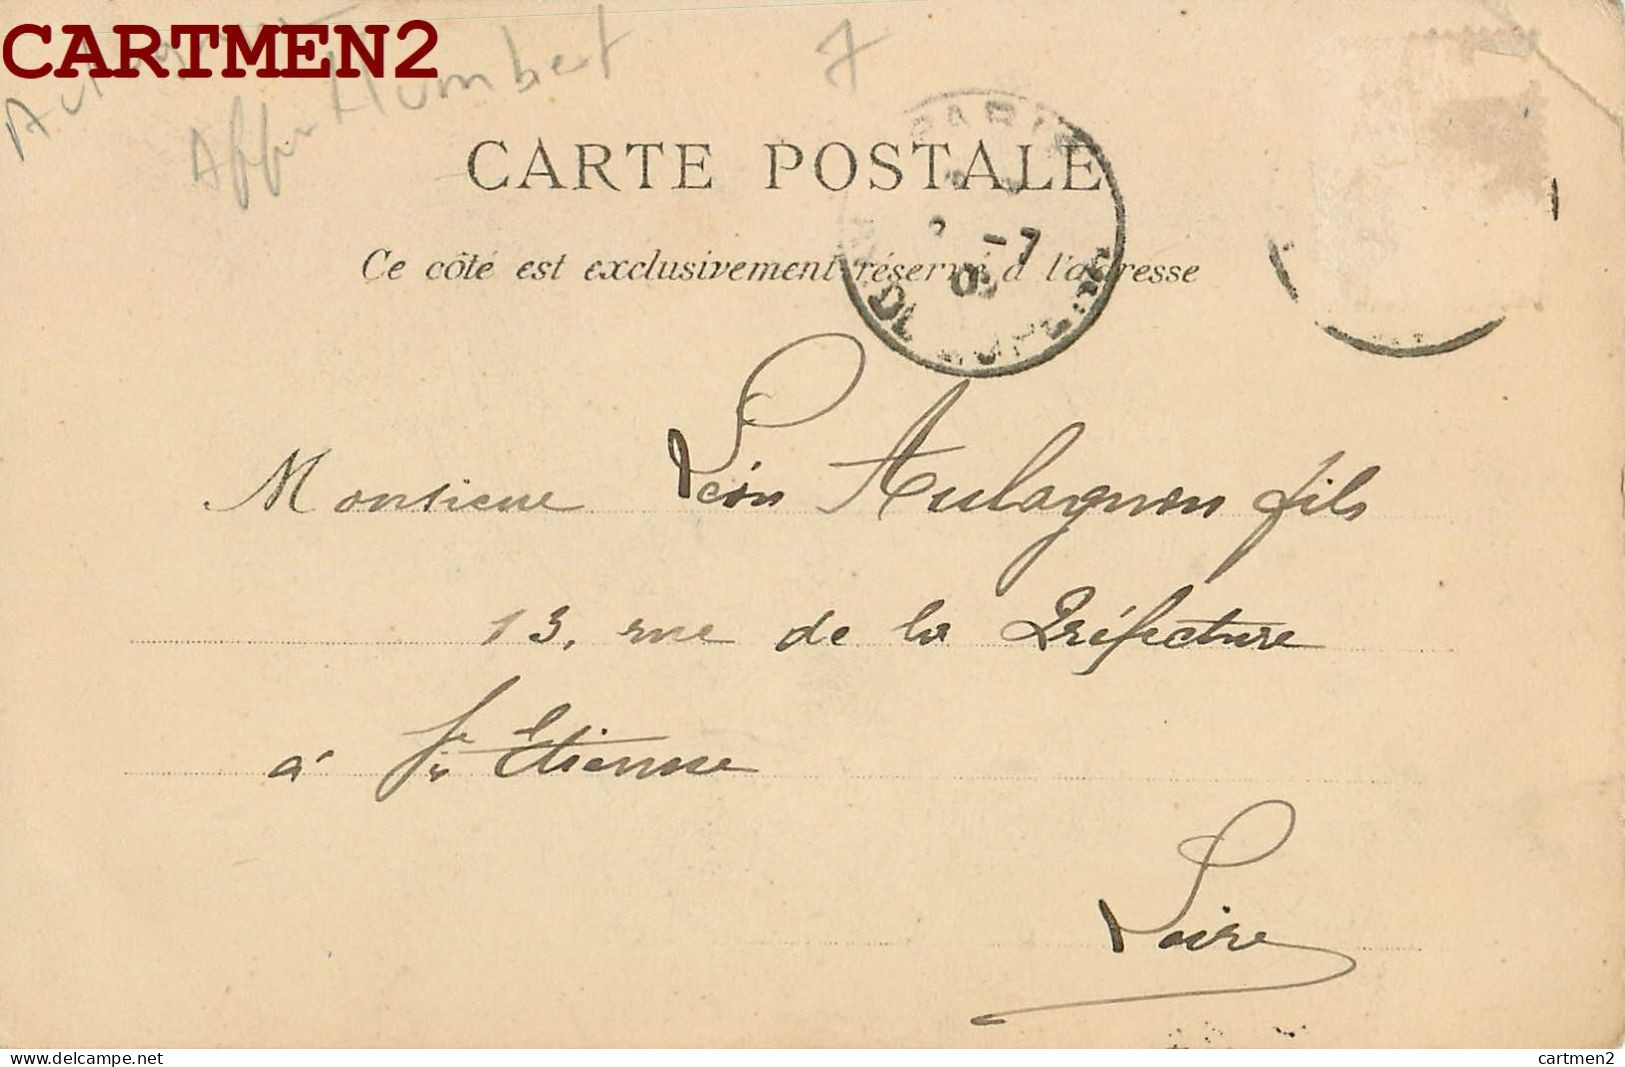 CARTMEN2
Affre Humbert
7
CARTE POSTALE
PARIS
-7
Ce côté est exclusivement réservé à l'adresse
Monsieur Léon Aulagnon fils
13, rue de la Préfecture
à St Etienne
Loire
cartmen2.delcampe.net
cartmen2